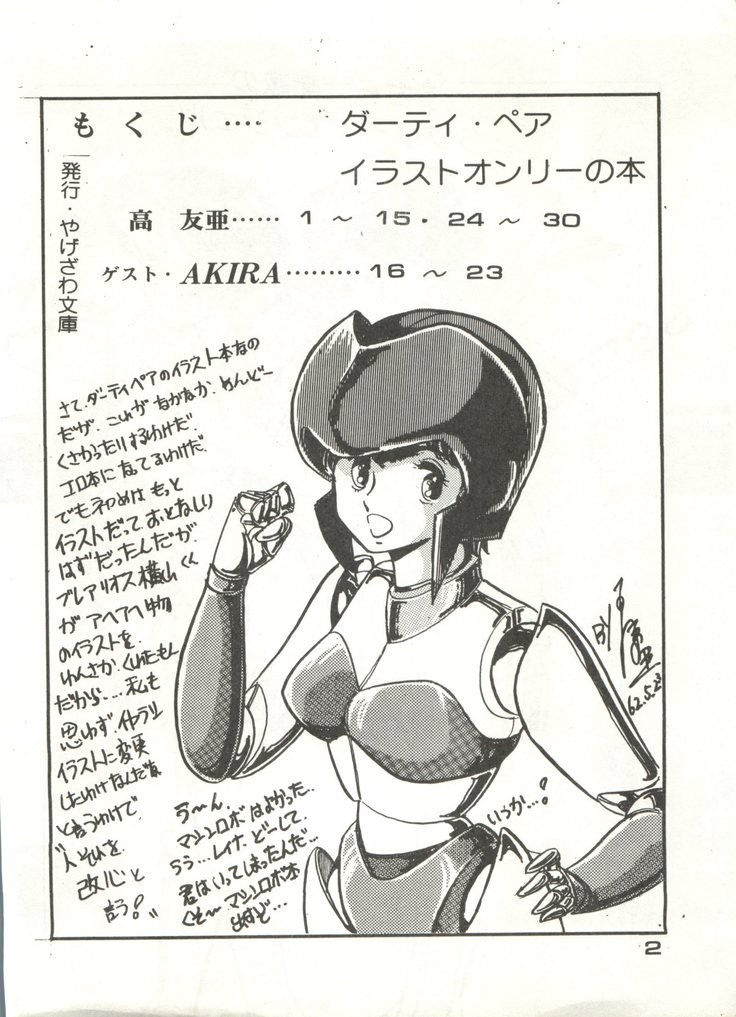 もくじ‥‥
ダーティ・ペア
イラストオンリーの本
発行・やげざわ文庫
高 友亜…… 1 ～ 15・24 ～ 30
ゲスト・AKIRA……… 16 ～ 23
さて、ダーティペアのイラスト本なの
だが、これが なかなか、めんどー
くさかったりするわけだ!
エロ本になってるわけだ!
でもネわめは もっと
イラストだって おとなしい
はずだったんだが
ブレアリオス横山くん
が アヘアヘ物
のイラストを、
わんさか、くれたもん
だから‥‥私も
思わず、イヤラシ
イラストに変更
したわけなんだな
と言うわけで
"人これを
改心と
言う!"
う～ん、
マシンロボはよかった‥
うう…レイナ、どーして
君はいってしまったんだ…
くそ～マシンロボ本
出すど…
いつか…!
62.5.23
2